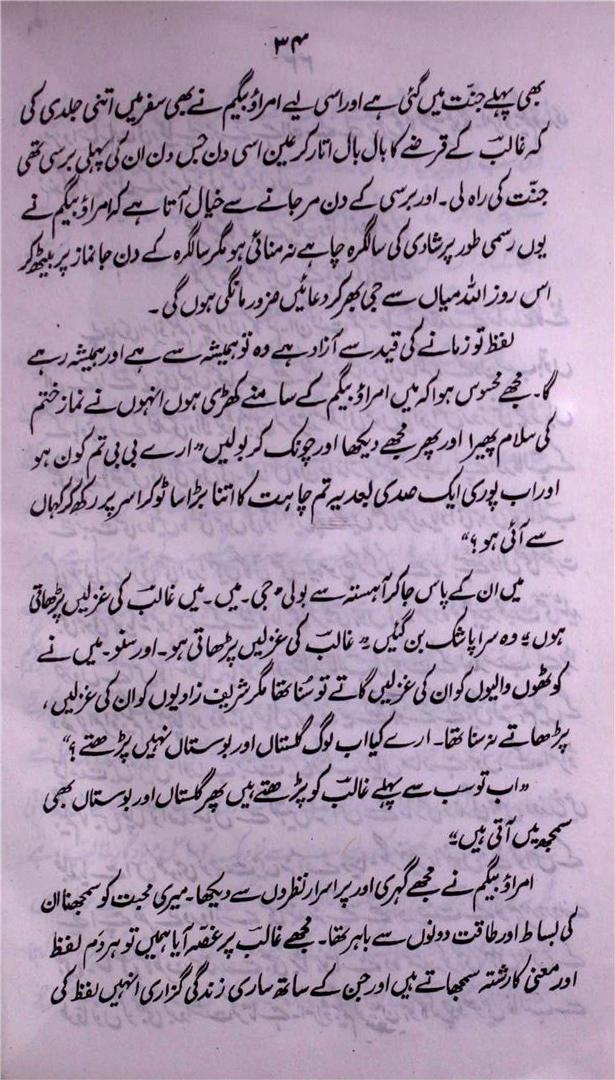 ۳۴
بھی پہلے جنّت میں گئی ہے اور اسی لیے امراؤ بیگم نے بھی سفر میں اتنی جلدی کی
کہ غالبؔ کے قرضے کا بال بال اتار کر عین اسی دن جس دن ان کی پہلی برسی تھی
جنّت کی راہ لی۔ اور برسی کے دن مر جانے سے خیال آتا ہے کہ امراؤ بیگم نے
یوں رسمی طور پر شادی کی سالگرہ چاہے نہ منائی ہو مگر سالگرہ کے دن جانماز پر بیٹھ کر
اس روز اللہ میاں سے جی بھر کر دعائیں ضرور مانگی ہوں گی۔
لفظ تو زمانے کی قید سے آزاد ہے وہ تو ہمیشہ سے ہے اور ہمیشہ رہے
گا۔ مجھے محسوس ہوا کہ میں امراؤ بیگم کے سامنے کھڑی ہوں انہوں نے نماز ختم
کی سلام پھیرا اور پھر مجھے دیکھا اور چونک کر بولیں ”ارے بی بی تم کون ہو
اور اب پوری ایک صدی بعد یہ تم چاہت کا اتنا بڑا سا ٹوکرا سر پر رکھ کر کہاں
سے آئی ہو؟“
میں ان کے پاس جا کر آہستہ سے بولی ”جی۔ میں۔ میں غالبؔ کی غزلیں پڑھاتی
ہوں“ وہ سراپا شک بن گئیں ”غالبؔ کی غزلیں پڑھاتی ہو۔ اور سنو۔ میں نے
کوٹھوں والیوں کو ان کی غزلیں گاتے تو سُنا تھا مگر شریف زادیوں کو ان کی غزلیں،
پڑھاتے نہ سنا تھا۔ ارے کیا اب لوگ گلستاں اور بوستاں نہیں پڑھتے؟“
”اب تو سب سے پہلے غالبؔ کو پڑھتے ہیں پھر گلستاں اور بوستاں بھی
سمجھ میں آتی ہیں“
امراؤ بیگم نے مجھے گہری اور پراسرار نظروں سے دیکھا۔ میری محبت کو سمجھنا ان
کی بساط اور طاقت دونوں سے باہر تھا۔ مجھے غالبؔ پر غصّہ آیا ہمیں تو ہر دَم لفظ
اور معنی کا رشتہ سمجھاتے ہیں اور جن کے ساتھ ساری زندگی گزاری انہیں لفظ کی